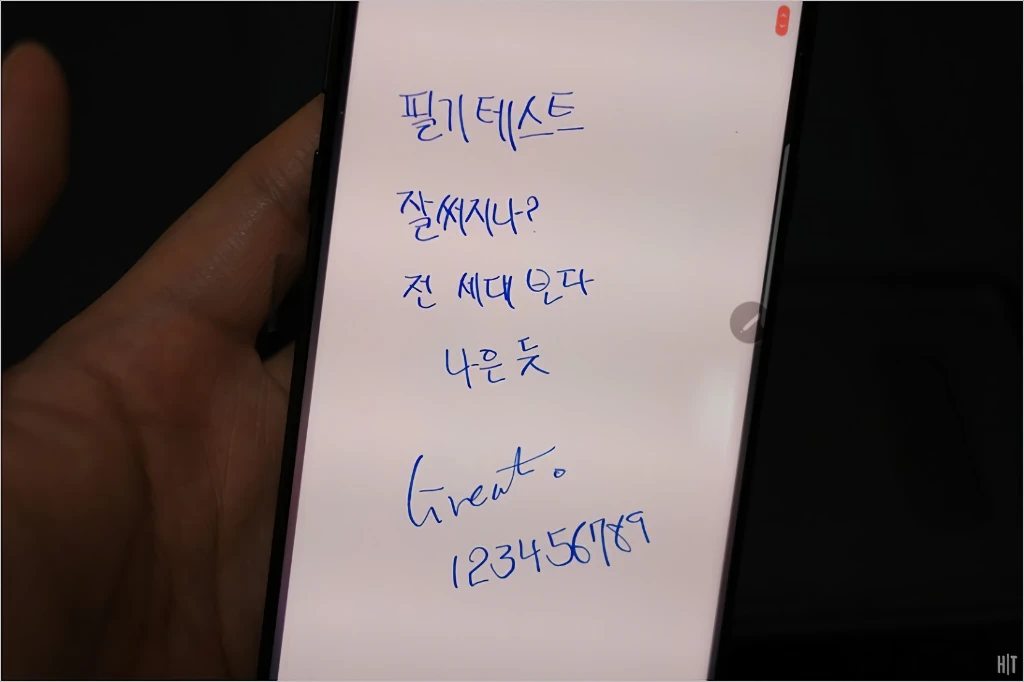 필기테스트
잘써지나?
전 세대 보다
나은 듯
Great.
123456789
H|T